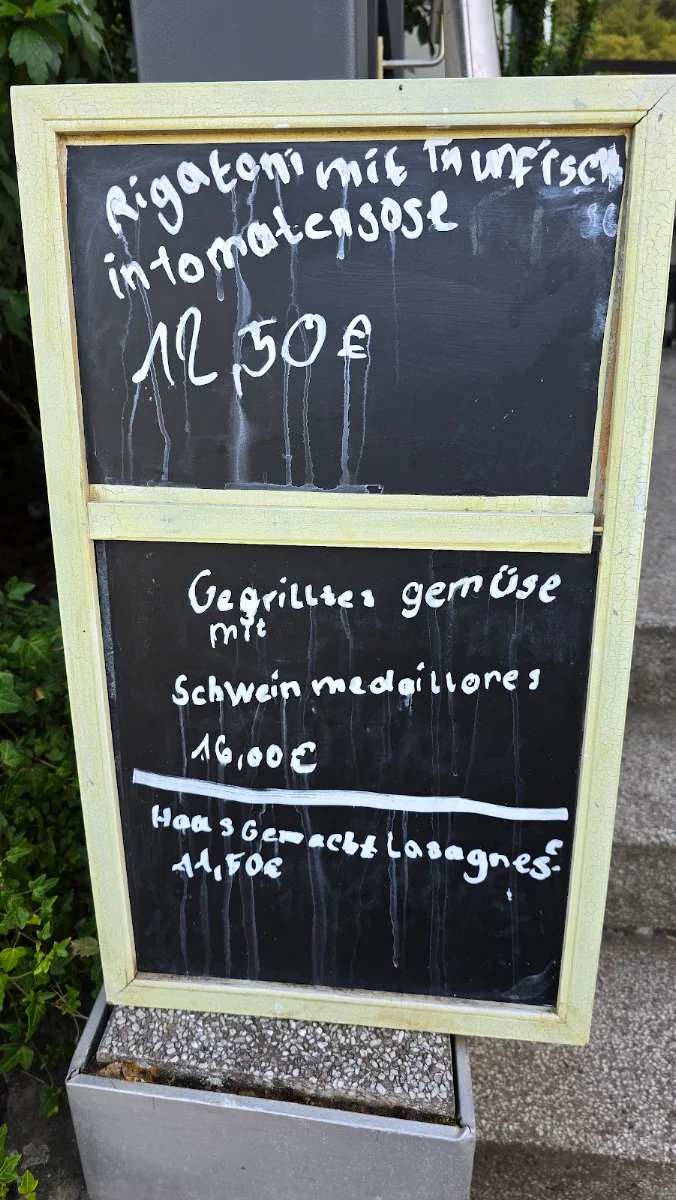 Rigatoni mit Thunfisch
in tomatensose
12,50 €
Gegrilltes gemüse
mit
Schwein medaillores
16,00€
Haas Gemacht Lasagnes
11,50€